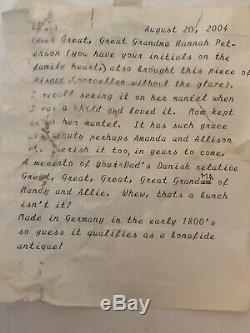 August 20, 2004
Great, Great Grandma Hannah Pet-
erson (you have your initials on
the family heart,) also brought this piece of
Bisque (porcellan without the glaze).
I recall seeing it on her mantel when
I was a child and loved it. Mom kept
it on her mantel. It has such grace
beauty perhaps Amanda and Allison
cherish it too, in years to come.
A memento of your Dad's Danish relative
Great, Great, Great, Great Grandma of
Mandy and Allie. Whew, that's a bunch
isn't it?
Made in Germany in the early 1800's
so guess it qualifies as a bonafide
antique!